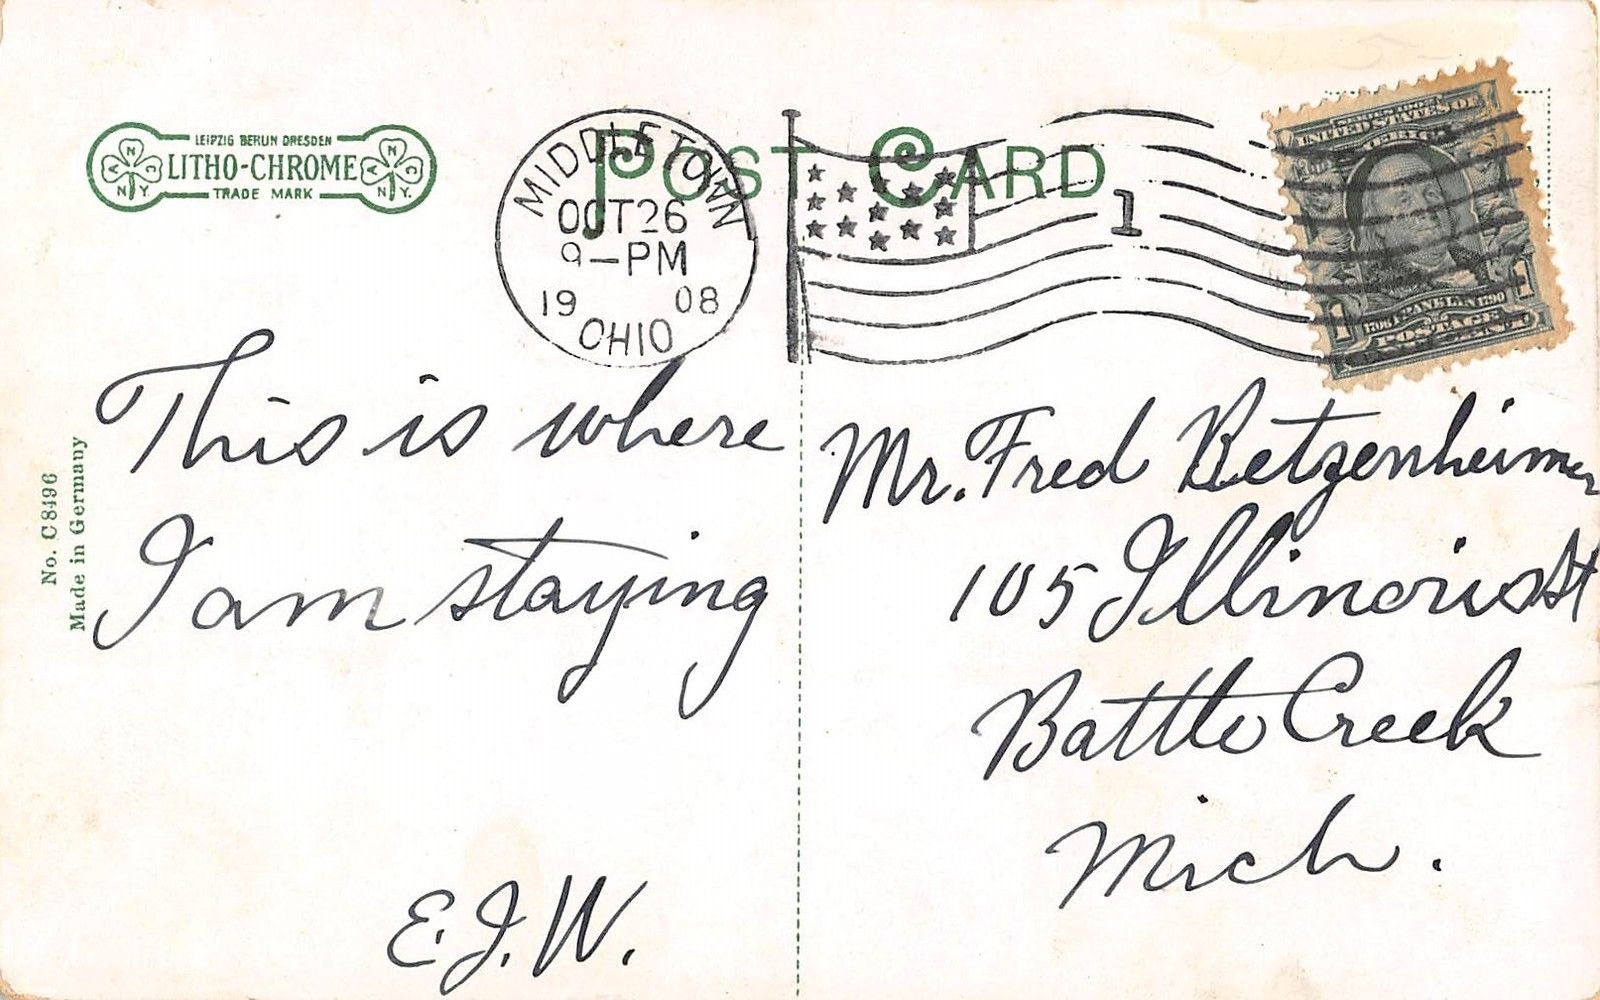 LEIPZIG BERLIN DRESDEN
LITHO-CHROME
TRADE MARK
N A C
N.Y.
N A C
N.Y.
POST CARD
MIDDLETOWN
OCT 26
9-PM
1908
OHIO
1
UNITED STATES OF
AMERICA
1706 FRANKLIN 1790
POSTAGE
1 1
No. C 8496
Made in Germany
This is where
I am staying
E.J.W.
Mr. Fred Betzenheimer
105 Illinois St
Battle Creek
Mich.